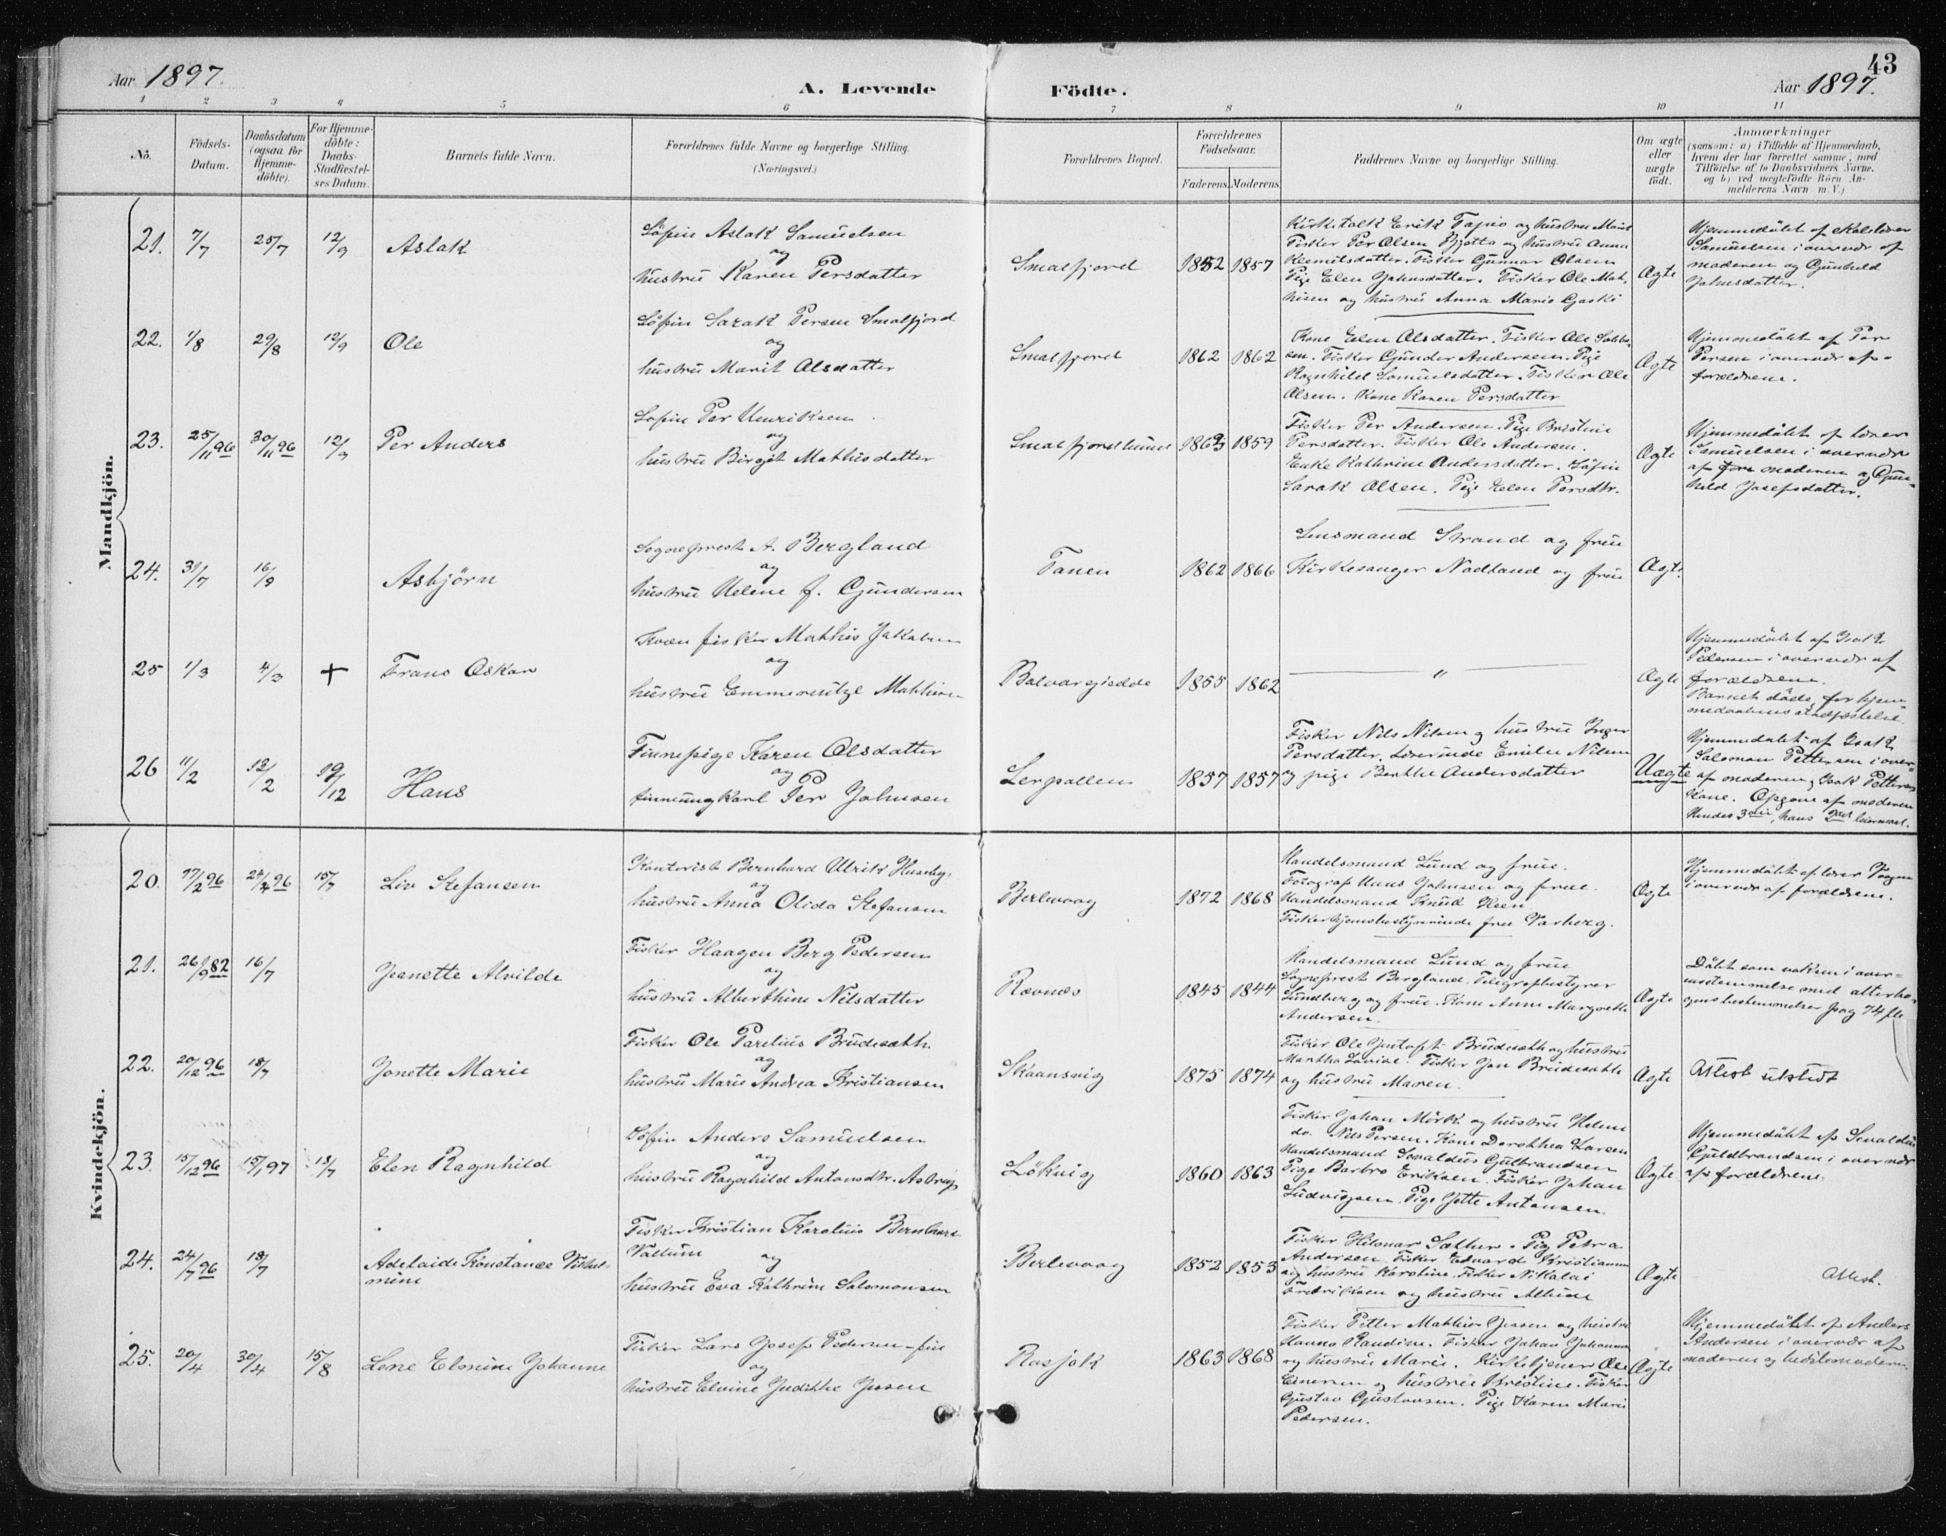 43
Aar 1897.
A. Levende
Födte.
Aar 1897.
1 2 3 4 5 6 7 8 9 10 11
No.
Födsels-
Datum.
Daabsdatum
(ogsaa for
Hjemme-
döbte).
For Hjemme-
döbte:
Daabs-
Stadfæstel-
ses Datum.
Barnets fulde Navn.
Forældrenes fulde Navne og borgerlige Stilling.
(Næringsvei.)
Forældrenes Bopæl.
Forældrenes
Födselsaar.
Faderens. Moderens.
Faddernes Navne og borgerlige Stilling.
Om ægte
eller
uægte
födt.
Anmærkninger
(saasom: a) i Tilfælde af Hjemmedaab,
hvem der har forrettet samme, med
Tilföielse af to Daabsvidners Navne,
og b) ved uægtefödte Börn An-
melderens Navn m. V.)
Mandkjön.
21. 7/7 25/7 12/9 Aslak
Söfin Aslak Samuelsen
og
hustru Karen Persdatter
Smalfjord 1852 1857
Kirketolk Erik og hustru
Fisker Per Olsen og hustru Anna
Klemitsdatter. Fisker Gunnar Olsen
Pige Elen Johnsdatter. Fisker Ole Mat-
hisen og hustru Anna Marie
Ægte
Hjemmedöbt af
Samuelsen i overvær af
moderen og Gunhild
Johnsdatter.
22. 1/8 29/8 12/9 Ole
Söfin Sarak Persen Smalfjord
og
hustru Marit Olsdatter
Smalfjord 1862 1862
Kone Elen Olsdatter. Fisker Ole
Fisker Gunder Andersen. Pige
Ragnhild Samuelsdatter. Fisker Ole
Olsen. Kone Karen Persdatter
Ægte
Hjemmedöbt af Per
Persen i overvær af
forældrene.
23. 25/11 96 30/11 96 12/9 Per Anders
Söfin Per Henriksen
og
hustru Birgit Mathisdatter
1863 1859
Fisker Per Andersen. Pige Bristine
Persdatter. Fisker Ole Andersen.
Enke Kathrine Andersdatter. Söfin
Sarak Olsen. Pige Elen Persdtr.
Ægte
Hjemmedöbt af lærer
Samuelsen i overvær
af moderen og Gun-
hild Josefsdatter.
24. 31/7 16/9 Asbjörn
Sogneprest A. Bergland
og
hustru Helene f. Gundersen
Tanen 1862 1866
Lensmand Strand og frue
Kirkesanger Nadland og frue
Ægte
25 1/3 4/3 + Frans Oskar
Kvæn fisker Mathis Jakobsen
og
hustru
1855 1862
"
Ægte
Hjemmedöbt af Isak
Pedersen i overvær af
forældrene.
Barnet döde för hjem-
medaabens stadfæstelse.
26 11/2 12/2 19/12 Hans
Finnepige Karen Olsdatter
og
finneungkarl Per Johnsen
Lerpollen 1857 1857
Fisker Nils Nilsen og hustru Inger
Persdatter. Lærerinde Emilie Nilsen
og pige Berthe Andersdatter
Uægte
Hjemmedöbt af Isak
Salomon Pettersen i over-
af moderen og Isak Petters
Kone. Opgave af moderen
Hendes 3die, hans 2det leiermaal.
Kvindekjön.
20. 17/2 96 24/2 96 15/7 Liv Stefansen
Kontorist Bernhard Ulrik Huseby
og
hustru Anna Olida Stefansen
Berlevaag 1872 1868
Handelsmand Lund og frue.
Fotograf Hans Johnsen og frue.
Handelsmand Knud Steen
Fiskerhjemsbestyrerinde fru Varberg.
Ægte
Hjemmedöbt af lærer
i overvær af forældrene.
21. 26/9 82 16/7 Jeanette Alvilde
Fisker Haagen Berg Pedersen
og
hustru Alberthine Nilsdatter
Rævnæs 1845 1844
Handelsmand Lund og frue
Sogneprest Bergland. Telegrafbestyrer
Lundberg og frue. Kone Anne Margrethe
Andersen.
Ægte
Döbt som voksen i over-
ensstemmelse med alterbo-
gens bestemmelser pag 74 ffl
22. 20/12 96 18/7 Jonette Marie
Fisker Ole Parelius Brudesæth
og
hustru Marie Andrea Kristiansen
Skaansvig 1875 1874
Fisker Ole Brudesæth og hustru
Martha Lovise. Fisker Jon Brudesæth
og hustru Maren.
Ægte
Attest utstedt
23. 15/12 96 15/1 97 18/7 Elen Ragnhild
Söfin Anders Samuelsen
og
hustru Ragnhild Antonsdtr. Astrup
Lökvig 1860 1863
Fisker Johan Mörk og hustru Helene
do. Nils Persen. Kone Dorothea Larsen
Handelsmand Sevaldus Gulbrandsen
Pige Barbro Eriksen. Fisker Johan
Ludvigsen. Pige Jette Antonsen.
Ægte
Hjemmedöbt af Sevaldus
Guldbrandsen i overvær
af forældrene.
24. 24/7 96 18/7 Adelaide Konstance Vilhel-
mine
Fisker Kristian Karelius Bernhard
Vallum
og
hustru Eva Kathrine Salomonsen
Berlevaag 1852 1853
Fisker Hilmar Sæther. Pige Petra
Andersen. Fisker Edvard Kristiansen
og hustru Karoline. Fisker Nikolai
Fredriksen og hustru
Ægte
Attest.
25. 20/4 30/4 15/8 Lone Elonine Johanne
Fisker Lars Josef Pedersen fin
og
hustru Elvine Judithe Jessen
Rasjok 1863 1868
Fisker Petter Mathis Jessen og hustru
Hanna Randine. Fisker Johan Johannsen
og hustru Marie. Kirketjener Ole
Einersen og hustru Kristine. Fisker
Gustav Gustavsen. Pige Karen Marie
Pedersen.
Ægte
Hjemmedöbt af Anders
Andersen i overvær af
moderen og bedstemoderen.